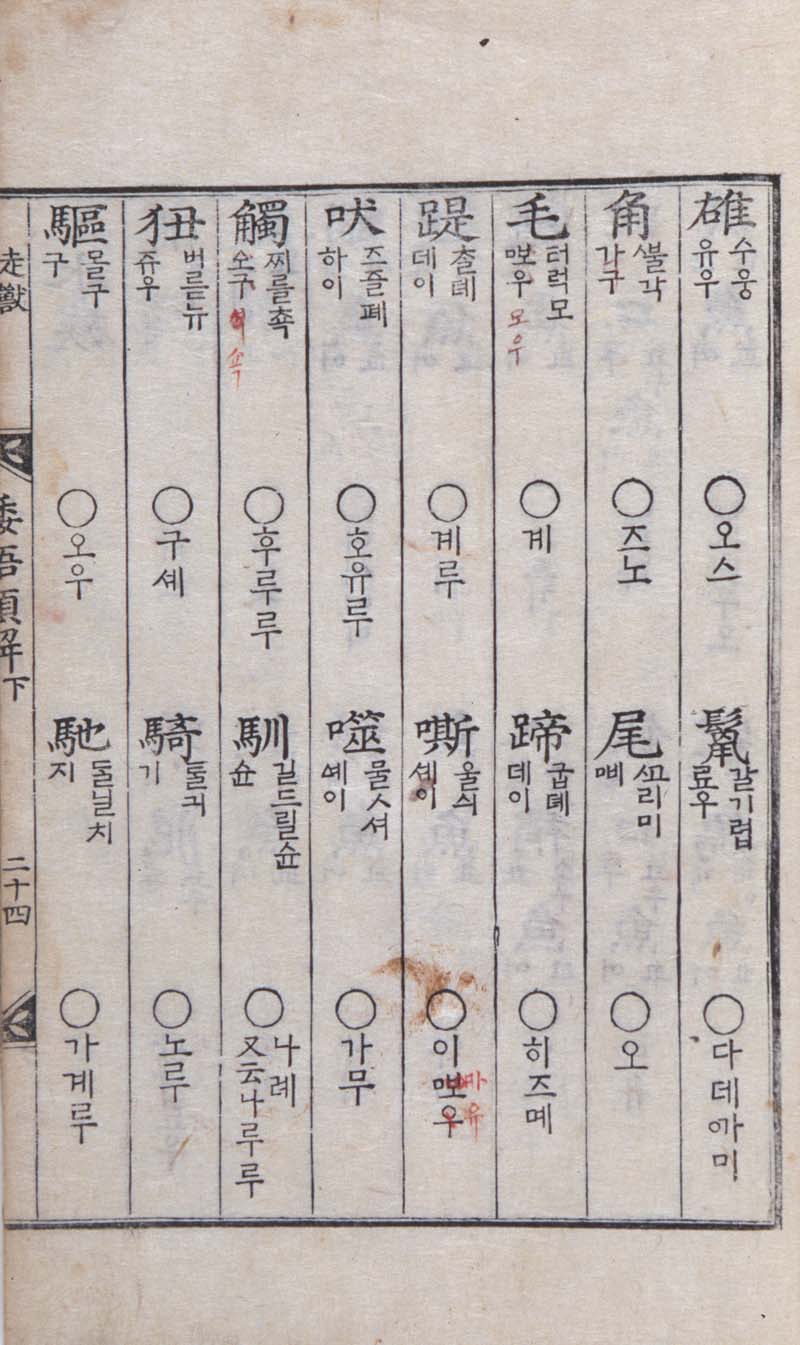 雄 수웅 유우 ○오스 鬣 갈기렵 료우 ○다데ᅁᅡ미
角 ᄲᅳᆯ각 가구 ○즈노 尾 ᄭᅩ리미 ᄜᅵ ○오
毛 터럭모 ᄜᅩ우 모우 ○계 蹄 굽뎨 데이 ○히즈몌
踶 데이 ○계루 嘶 울싀 셰이 ○이ᄜᅩ우 마유
吠 즈즐폐 하이 ○호유루 噬 물ㅅ셔 셰이 ○가무
觸 찌를쵹 쇼구 쇽 ○후루루 馴 길드릴슌 슌 ○나례 又云나루루
狃 버릇뉴 쥬우 ○구셰 騎 ᄐᆞᆯ긔 기 ○노루
驅 몰구 구 ○오우 馳 ᄃᆞᆯ닐치 지 ○가계루
走獸 倭語類解下 二十四